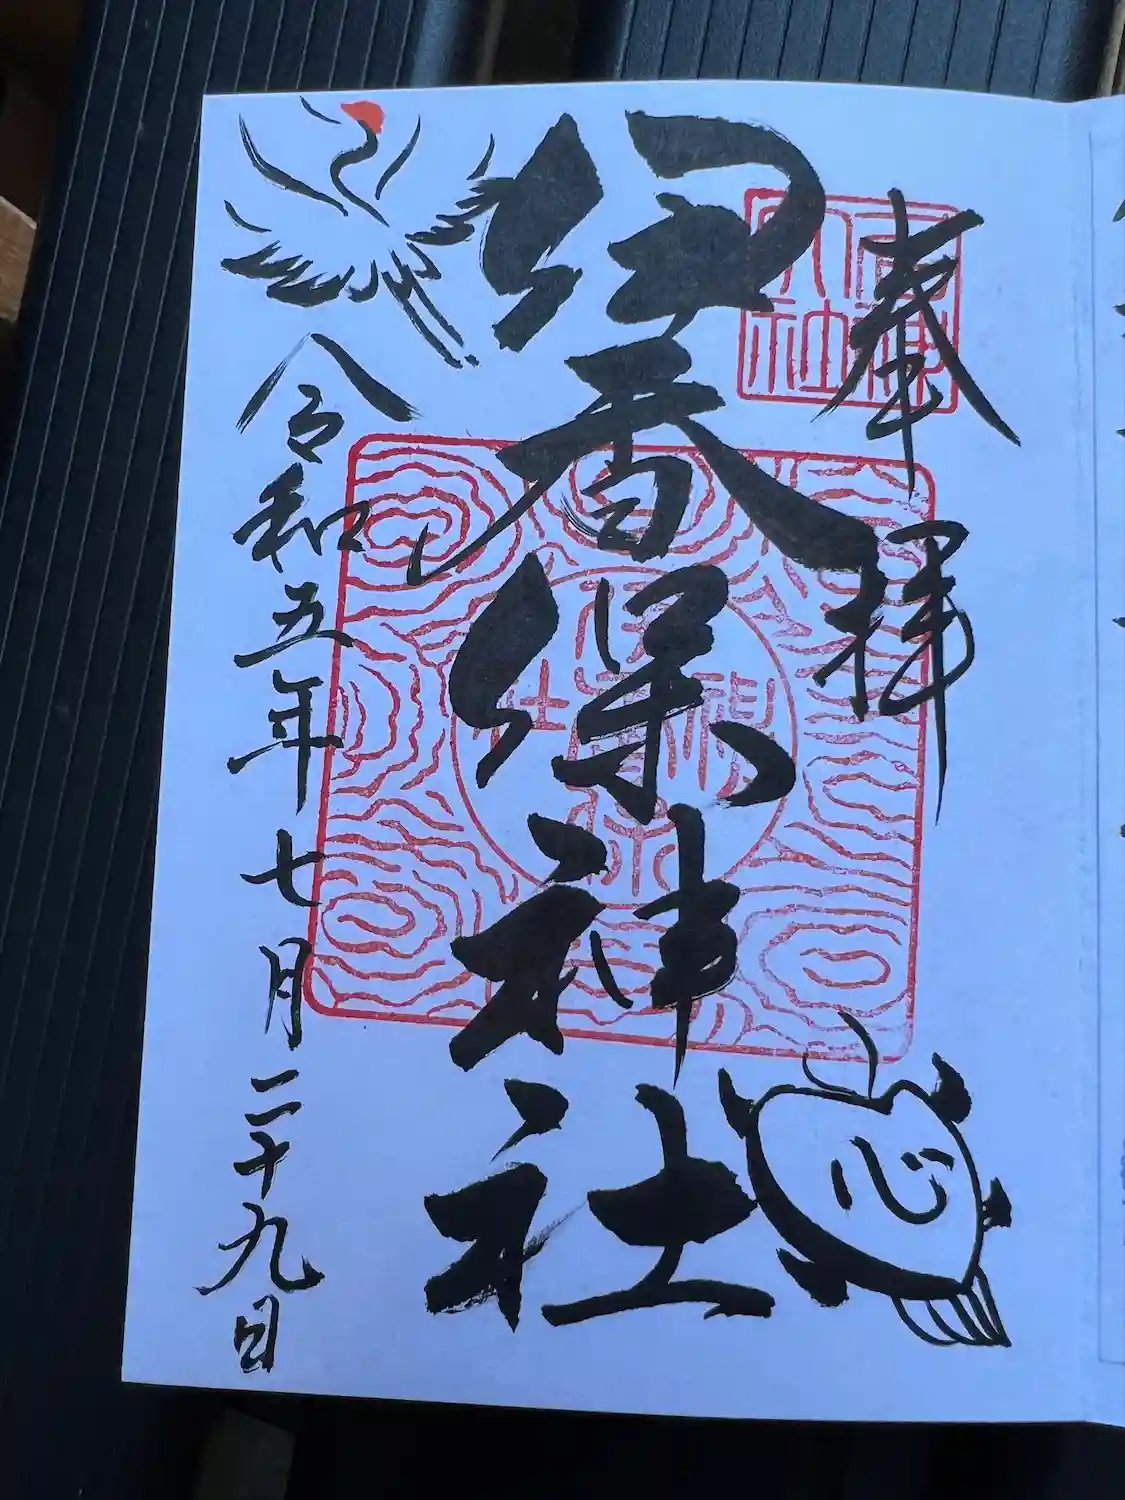 奉拝
伊香保神社
心
令和五年七月二十九日